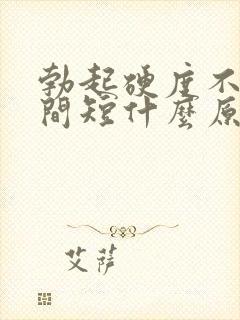 勃起硬度不
間短什麼原
艾薩